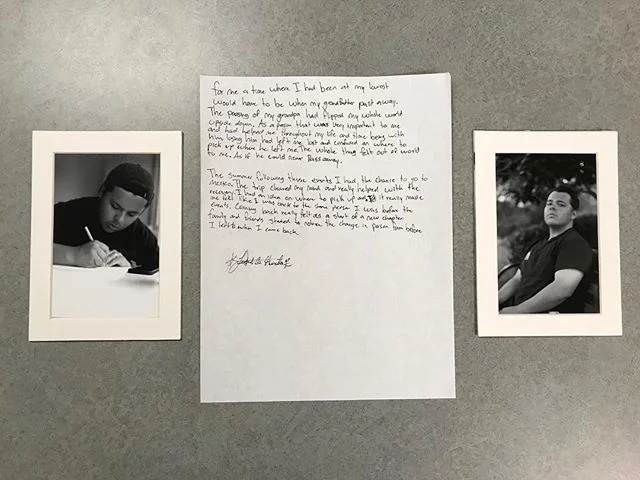 For me a time where I had been at my lowest
would have to be when my grandfather past away.
The passing of my grandpa had flipped my whole world
upside down. As a person that was very important to me
and had helped me throughout my life and time being with
him losing him had left me lost and confused on where to
pick up where he left me. The whole thing felt out of world
to me. As if he could never Pass away.
The summer following those events I had the chance to go to
mexico. The trip cleared my mind and really helped with the
recovery. I had an idea on where to pick up and it really made
me feel like I was back to the same person I was before the
events. Coming back really felt as a start of a new chapter
family and friends started to notice the change in person from before
I left to when I came back.